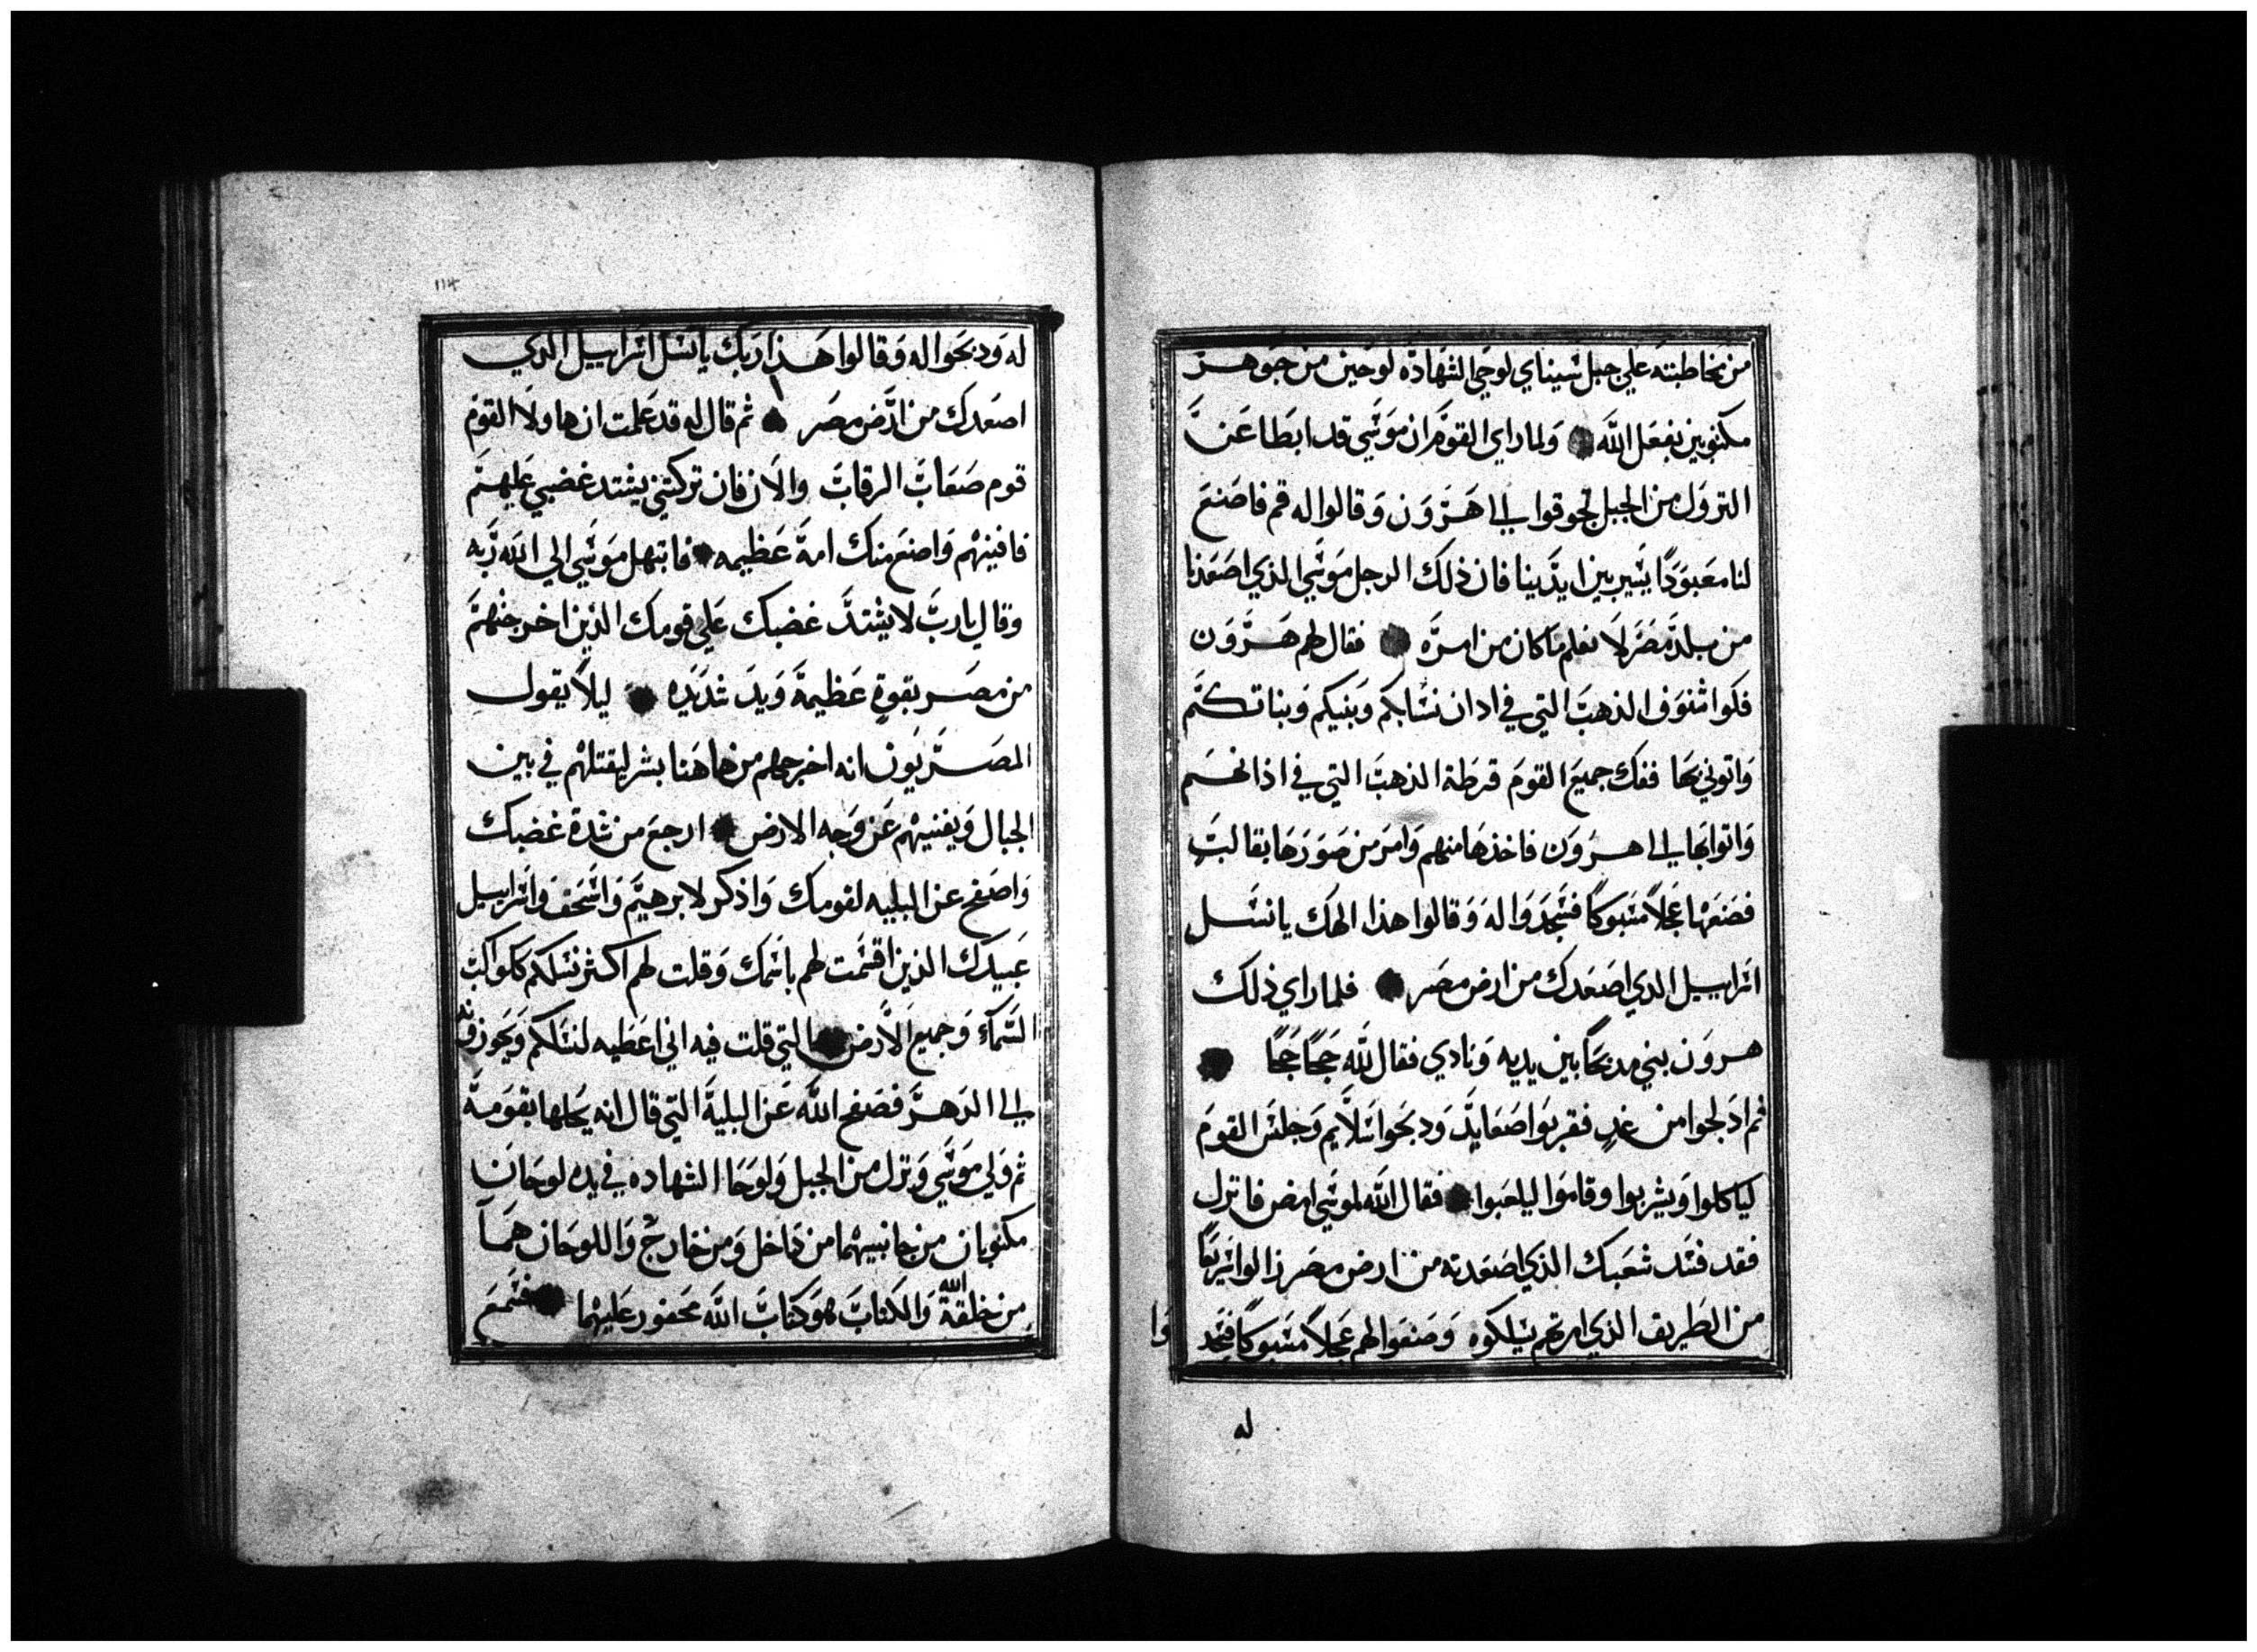 من مخاطبته علي جبل سيناي لوحي الشهادة لوحين من جوهر
مكتوبين بفعل الله ولما راي القوم ان موسي قد ابطا عن
النزول من الجبل تجوقوا الي هرون وقالوا له قم فاصنع
لنا معبودًا يسير بين ايدينا فان ذلك الرجل موسي الذي اصعدنا
من بلد مصر لا نعلم ما كان من امره فقال لهم هرون
فكوا شنوف الذهب التي في ادان نسايكم وبنيكم وبناتكم
واتوني بها ففك جميع القوم قرطة الذهب التي في اذانهم
واتوا بها الي هرون فاخذها منهم وامر من صورها بقالب
فصنعها عجلاً مسبوكًا فسجدوا له وقالوا هذا الهك يا نسل
اسراييل الدي اصعدك من ارض مصر فلما راي ذلك
هرون بني مدبحًا بين يديه ونادي فقال لله حجًا حجًا
ثم ادلجوا من غدٍ فقربوا صعايد ودبحوا سلايم وجلس القوم
لياكلوا ويشربوا وقاموا ليلعبوا فقال الله لموسي امض فانزل
فقد فسد شعبك الذي اصعدته من ارض مصر زالوا سريعًا
من الطريق الذي امرتهم يسلكوه وصنعوا لهم عجلاً مسبوكًا فسجد
وا
له
114
له ودبحوا له وقالوا هذا ربك يا نسل اسراييل الدي
اصعدك من ارض مصر ثم قال له قد علمت ان هاولا القوم
قوم صعاب الرقاب والان فان تركتني يشتد غضبي عليهم
فافنيهم واصنع منك امة عظيمه فابتهل موسي الي الله ربه
وقال يا رب لا يشتد غضبك علي قومك الذين اخرجتهم
من مصر بقوةٍ عظيمة ويد شديده ليلاً يقول
المصريون انه اخرجهم من هاهنا بشر ليقتلهم في بين
الجبال ويفنيهم عن وجه الارض ارجع من شدة غضبك
واصفح عن البليه لقومك واذكر لابرهيم واسحق واسراييل
عبيدك الذين اقسمت لهم باسمك وقلت لهم اكثر نسلكم ككواكب
السماء وجميع الارض التي قلت فيه اني اعطيه لنسلكم ويحوزونه
الي الدهر فصفح الله عن البلية التي قال انه يحلها بقومه
ثم ولي موسي ونزل من الجبل ولوحا الشهاده في يده لوحان
مكتوبان من جانبيهما من داخل ومن خارج واللوحان هما
من خلقة الله والكتاب هو كتاب الله محفور عليهما فسمع